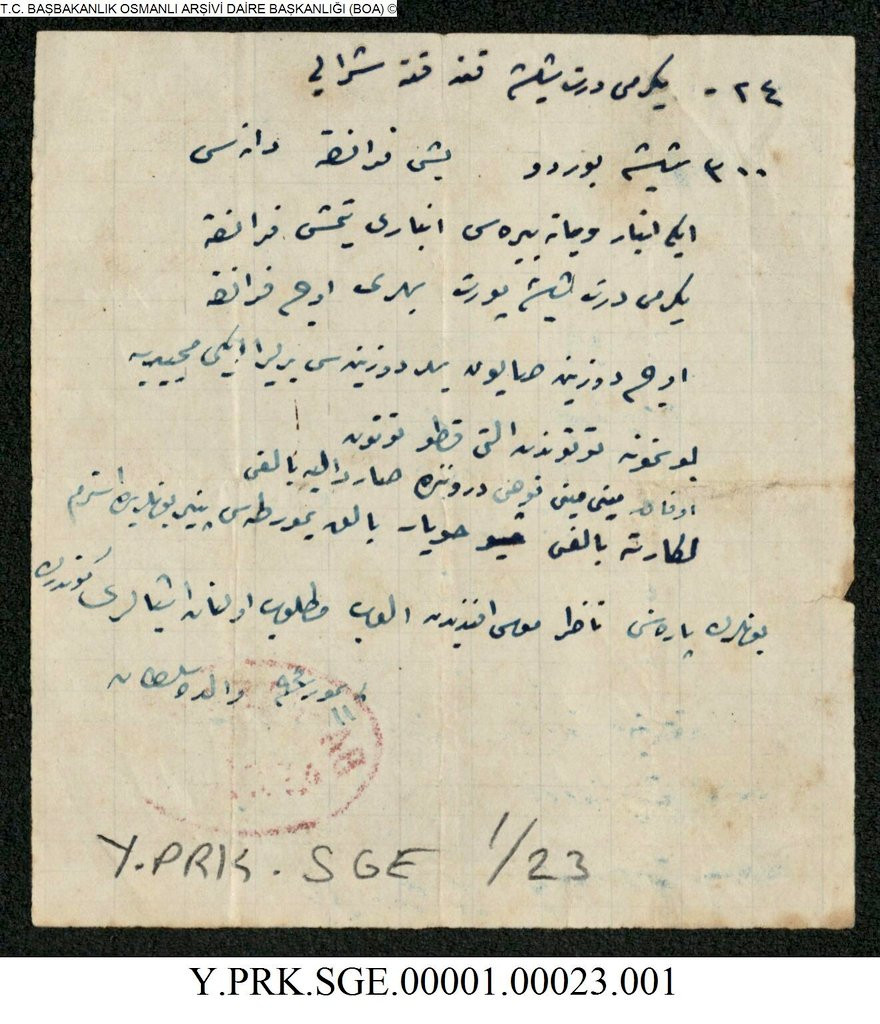 T.C. BAŞBAKANLIK OSMANLI ARŞİVİ DAİRE BAŞKANLIĞI (BOA) ©
٢٤ - يكرمی درت شیشه قنه قنه شرابی
٣٠٠ شیشه بوردو بشی فرانقه دانه‌سی
ایکی انبار ویانه بیره‌سی انباری یتمش فرانقه
یکرمی درت شیشه پورت بهری اوچ فرانقه
اوچ دوزین صابون بهر دوزینه‌سی بر لیرا ایکی مجیدیه
بو نمونه توتوندن التی قطو توتون
اوفاق مینی مینی دروننده صاردالیه بالغی
بالغی حویار بالق یمورطه‌سی پینیر بونلری استرم
بونلرك پاره‌سنی ناظر موسی افندیدن الوب مطلوب اولنان اشیالری كوندرك
والده سلطان
Y.PRK.SGE 1/23
Y.PRK.SGE.00001.00023.001